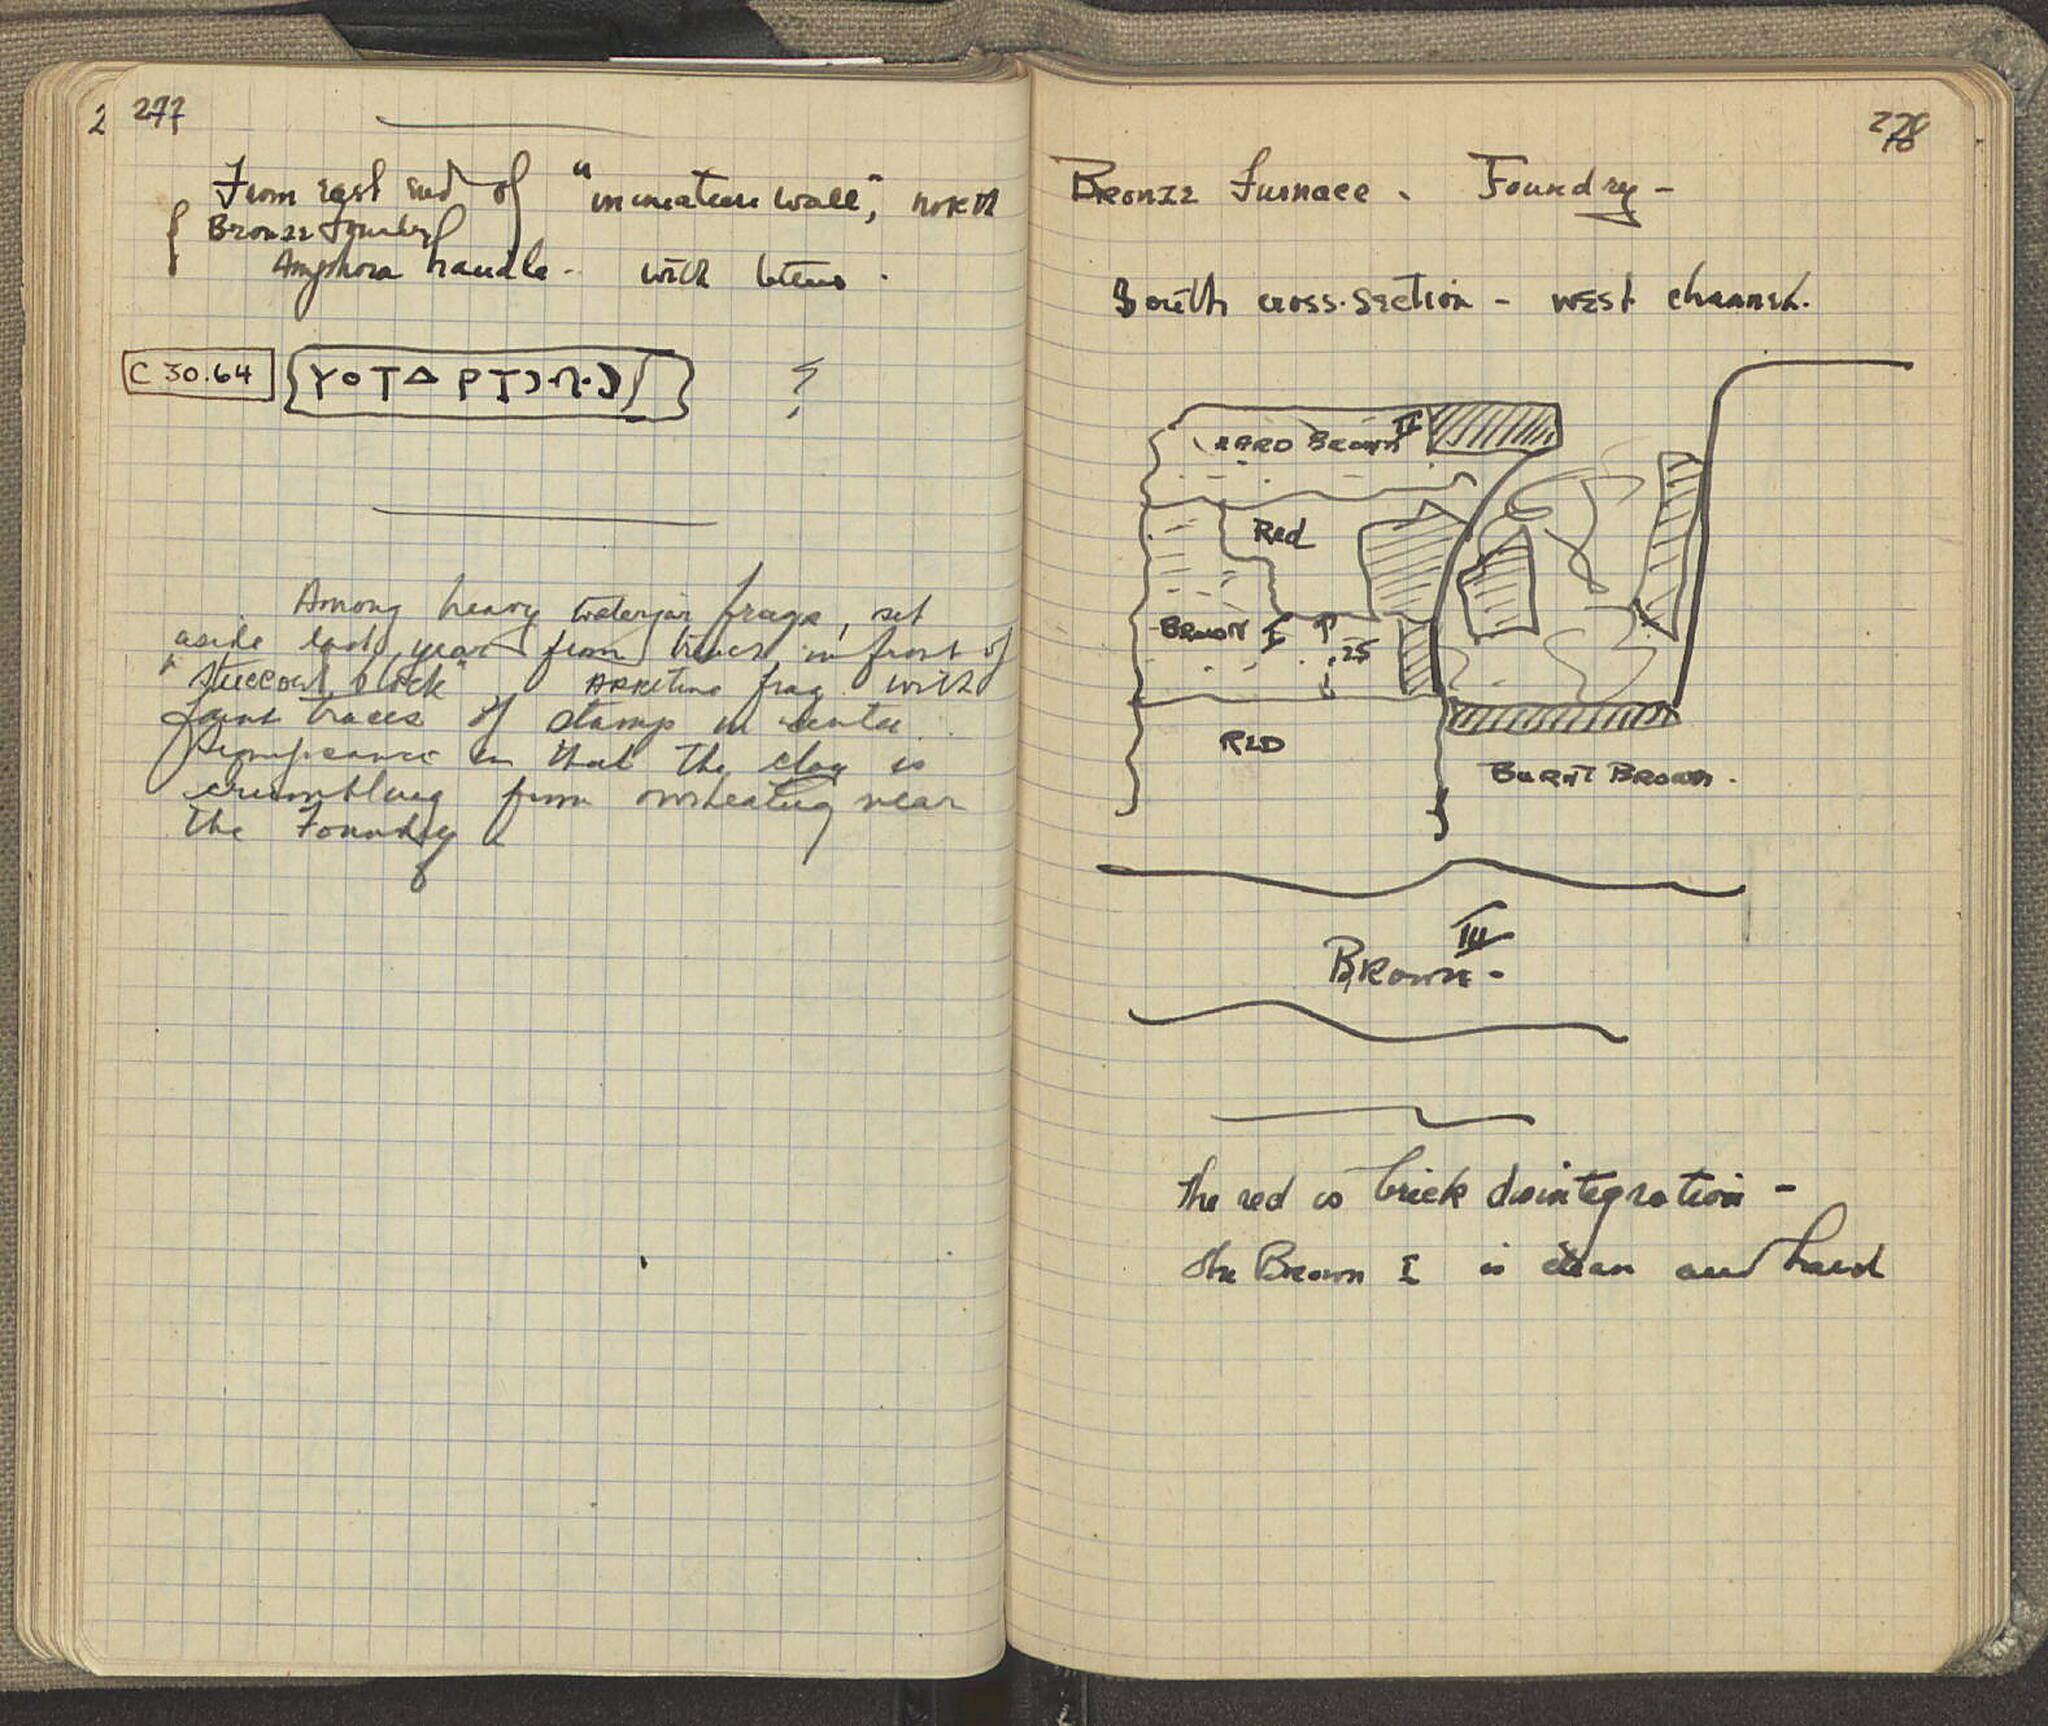 277
From east end of "miniature wall", north
Bronze Foundry
Amphora handle - with letters.
C 30.64
ΥΟΤΔΡΤ
?
Among heavy waterjar frags, set
aside last year from trench in front of
"stuccoed block" Arretine frag. with
faint traces of stamp in center.
Significance in that the clay is
crumbling from overheating near
the Foundry
278
Bronze Furnace. Foundry -
South cross-section - west channel.
HARD BROWN II
Red
BROWN I
25
RED
BURNT BROWN.
III
BROWN -
The red is brick disintegration -
the Brown I is clean and hard